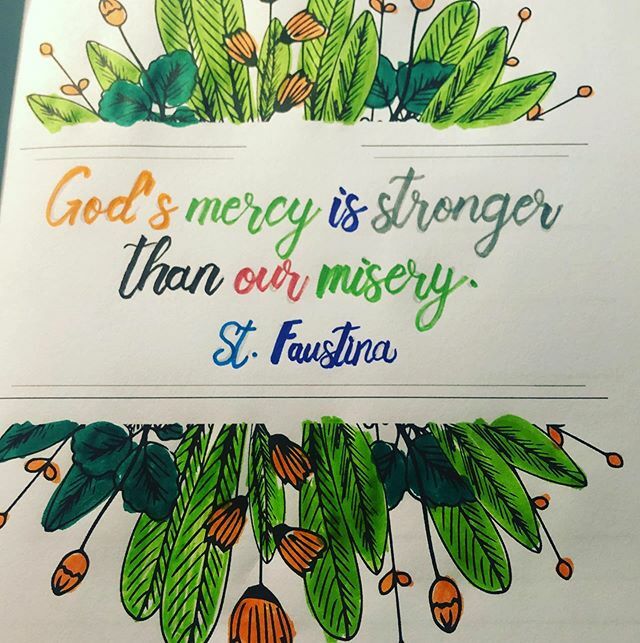 God's mercy is stronger
than our misery.
St. Faustina